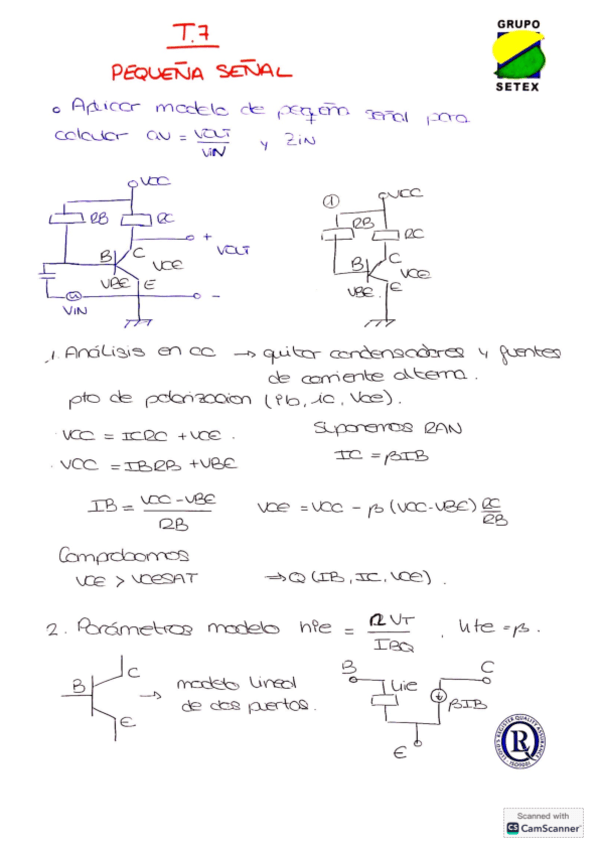 T.7
GRUPO
SETEX
PEQUEÑA SEÑAL
o Aplicar modelo de pequeñ señal para
calcular av = VOUT/VIN y ZIN
VCC
RB RC
+
VOUT
B C
VCE
VBE E
-
VIN
①
VCC
RB
RC
B C
VCE
VBE E
1. Análisis en CC → quitar condensadores y fuentes
de corriente alterna.
pto de polarizacion (ib, ic, Vce).
· VCC = ICRC + VCE.
Suponemos RAN
· VCC = IBRB + VBE
IC = βIB
IB = VCC-VBE/RB
VCE = VCC - β (VCC-VBE) RC/RB
Comprobamos
VCE > VCESAT ⇒ Q (IB, IC, VCE).
2. Parámetros modelo hie = ηVT/IBQ, hfe = β.
B C E
→ modelo lineal
de dos puertos.
B C
hie
βIB
E
LLOYD'S REGISTER QUALITY ASSURANCE
ISO9001
Scanned with
CS CamScanner